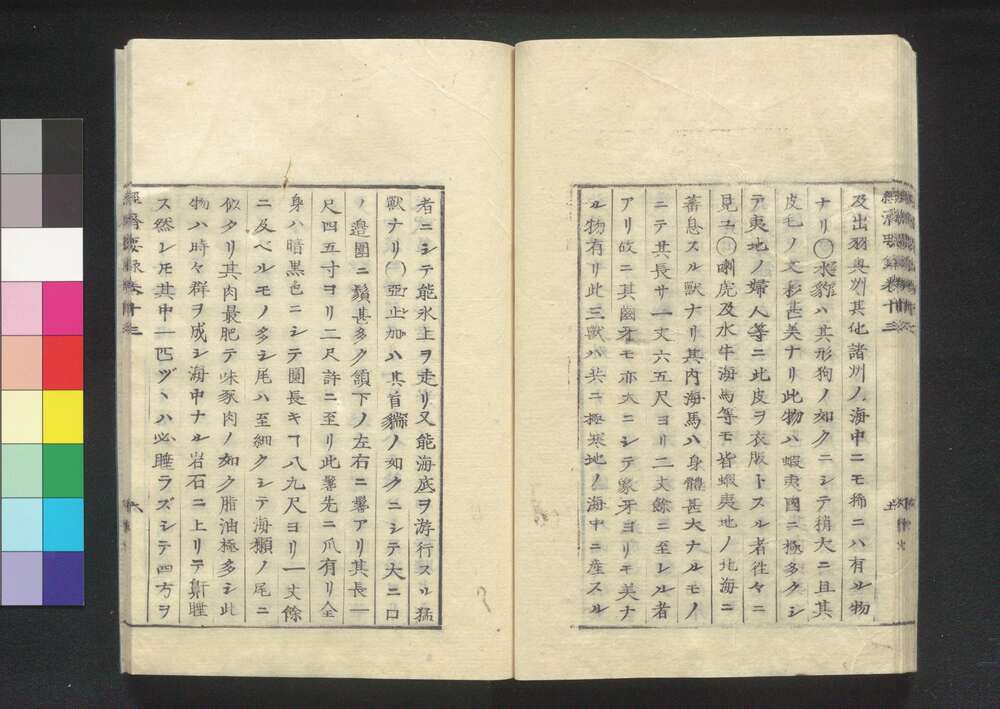 及出羽奥州其他諸州ノ海中ニモ稀ニハ有ル物
ナリ〇水豹ハ其形狗ノ如クニシテ稍大ニ且其
皮毛ノ文彩甚美ナリ此物ハ蝦夷國ニ極多クシ
テ夷地ノ婦人等ニ此皮ヲ衣服トスル者往々ニ
見ユ〇猟虎及水牛海馬等モ皆蝦夷地ノ北海ニ
蕃息スル獣ナリ其内海馬ハ身體甚大ナルモノ
ニテ其長サ一丈六五尺ヨリ二丈餘ニ至レル者
アリ故ニ其齒牙モ亦大ニシテ象牙ヨリモ美ナ
ル物有リ此三獣ハ共ニ極寒地ノ海中ニ産スル
者ニシテ能氷上ヲ走リ又能海底ヲ游行スル猛
獣ナリ〇亞止加ハ其首猫ノ如クニシテ大ニ口
ノ邉圍ニ鬚甚多ク頷下ノ左右ニ鬐アリ其長一
尺四五寸ヨリ二尺許ニ至リ此鬐先ニ爪有リ全
身ハ暗黒色ニシテ圓長キヿ八九尺ヨリ一丈餘
ニ及ベルモノ多シ尾ハ至細クシテ海獺ノ尾ニ
似タリ其肉最肥テ味豕肉ノ如ク脂油極多シ此
物ハ時々群ヲ成シ海中ナル岩石ニ上リテ鼾睡
ス然レモ其中一匹ヅヽハ必睡ラズシテ四方ヲ